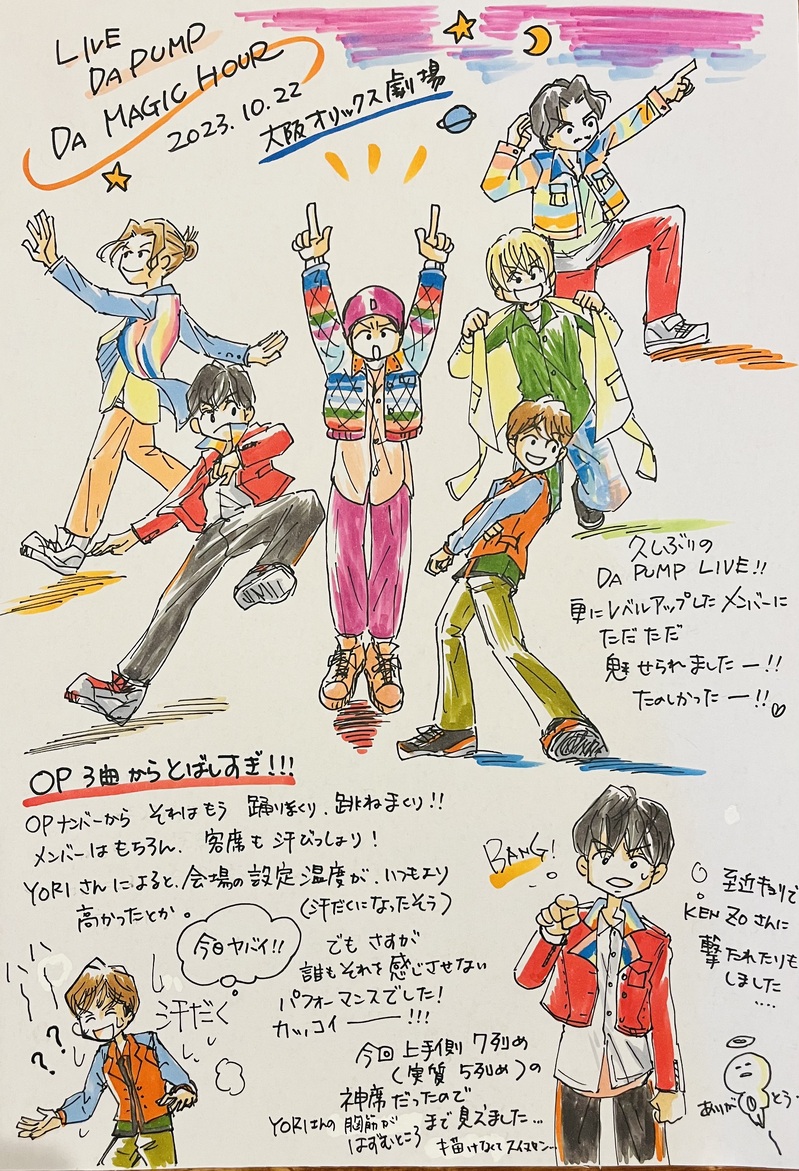 LIVE
DA PUMP
DA MAGIC HOUR
2023.10.22
大阪オリックス劇場
D
久しぶりの
DA PUMP LIVE!!
更にレベルアップしたメンバーに
ただただ
魅せられましたー!!
たのしかったー!!♡
OP 3曲からとばしすぎ!!!
OPナンバーから それはもう 踊りまくり、跳ねまくり!!
メンバーはもちろん、客席も汗びっしょり!
YORIさんによると、会場の設定温度が、いつもより
高かったとか。
(汗だくになったそう)
今日ヤバイ!!
汗だく
??
でも さすが
誰もそれを感じさせない
パフォーマンスでした!
カッコイーーー!!!
今回 上手側 7列め
(実質 5列め)の
神席だったので
YORIさんの胸筋が
はずむところ まで見えました…
描けなくてスイマセン…
BANG!
至近キョリで
KENZOさんに
撃たれたりも
しました
....
ありがとう…